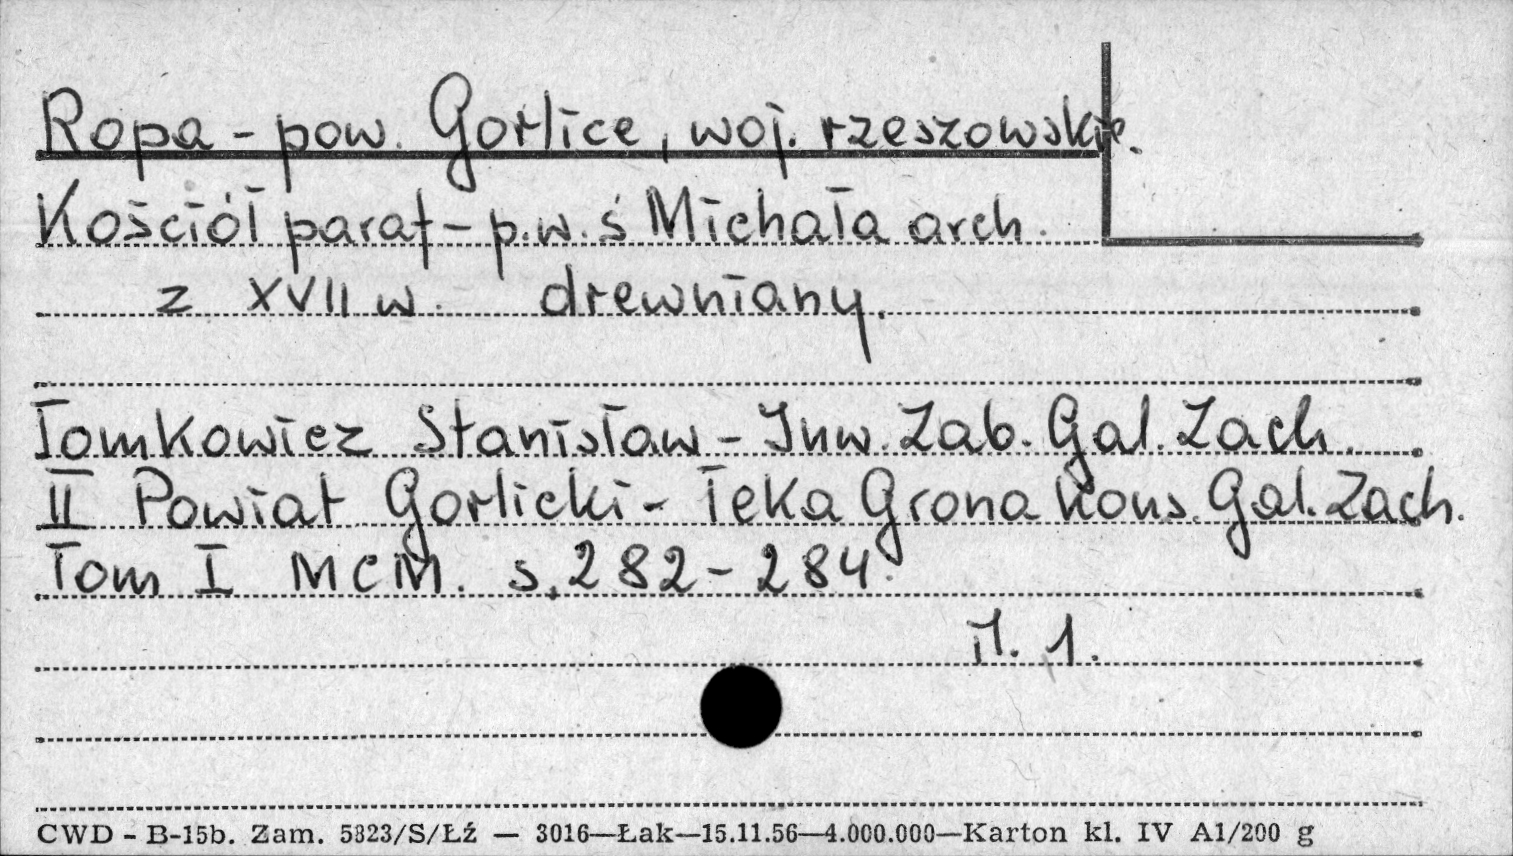 Ropa - pow. Gorlice, woj. rzeszowskie.
Kościół paraf - p.w. ś Michała arch.
z XVII w. drewniany.
Tomkowicz Stanisław - Inw. Zab. Gal. Zach.
II Powiat Gorlicki - Teka Grona Kons. Gal. Zach.
Tom I MCM. s. 282 - 284.
il. 1.
CWD - B-15b. Zam. 5823/S/Łź — 3016—Łak—15.11.56—4.000.000—Karton kl. IV A1/200 g